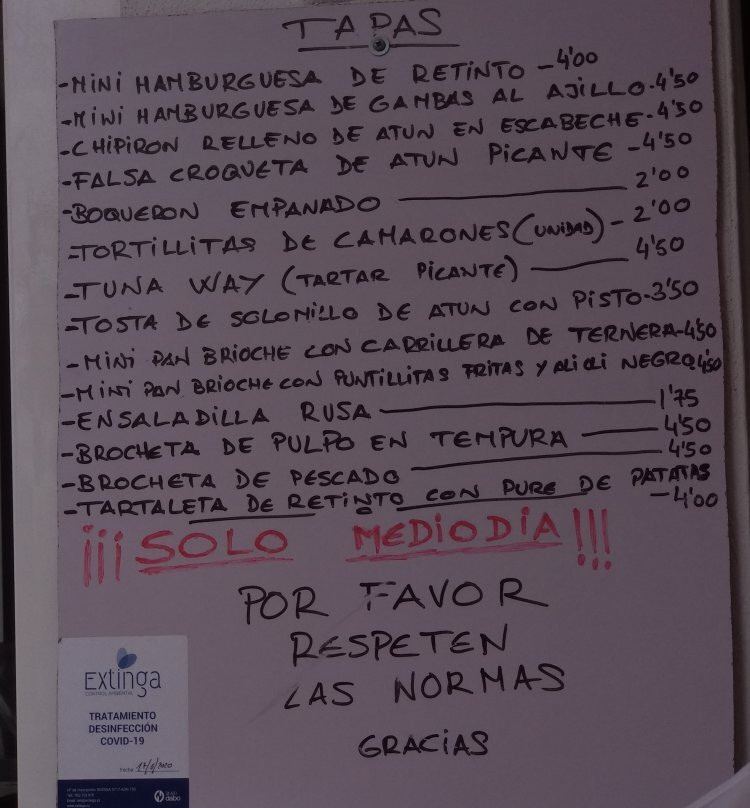 TAPAS
-MINI HAMBURGUESA DE RETINTO -4'00
-MINI HAMBURGUESA DE GAMBAS AL AJILLO-4'50
-CHIPIRON RELLENO DE ATUN EN ESCABECHE-4'50
-FALSA CROQUETA DE ATUN PICANTE -4'50
-BOQUERON EMPANADO 2'00
-TORTILLITAS DE CAMARONES (UNIDAD) - 2'00
-TUNA WAY (TARTAR PICANTE) 4'50
-TOSTA DE SOLOMILLO DE ATUN CON PISTO-3'50
-MINI PAN BRIOCHE CON CARRILLERA DE TERNERA-4'50
-MINI PAN BRIOCHE CON PUNTILLITAS FRITAS Y ALI OLI NEGRO 4'50
-ENSALADILLA RUSA 1'75
-BROCHETA DE PULPO EN TEMPURA 4'50
-BROCHETA DE PESCADO 4'50
-TARTALETA DE RETINTO CON PURE DE PATATAS
-4'00
¡¡¡SOLO MEDIODIA!!!
POR FAVOR
RESPETEN
LAS NORMAS
GRACIAS
Extinga
CONTROL AMBIENTAL
TRATAMIENTO
DESINFECCIÓN
COVID-19
Fecha:
dabo